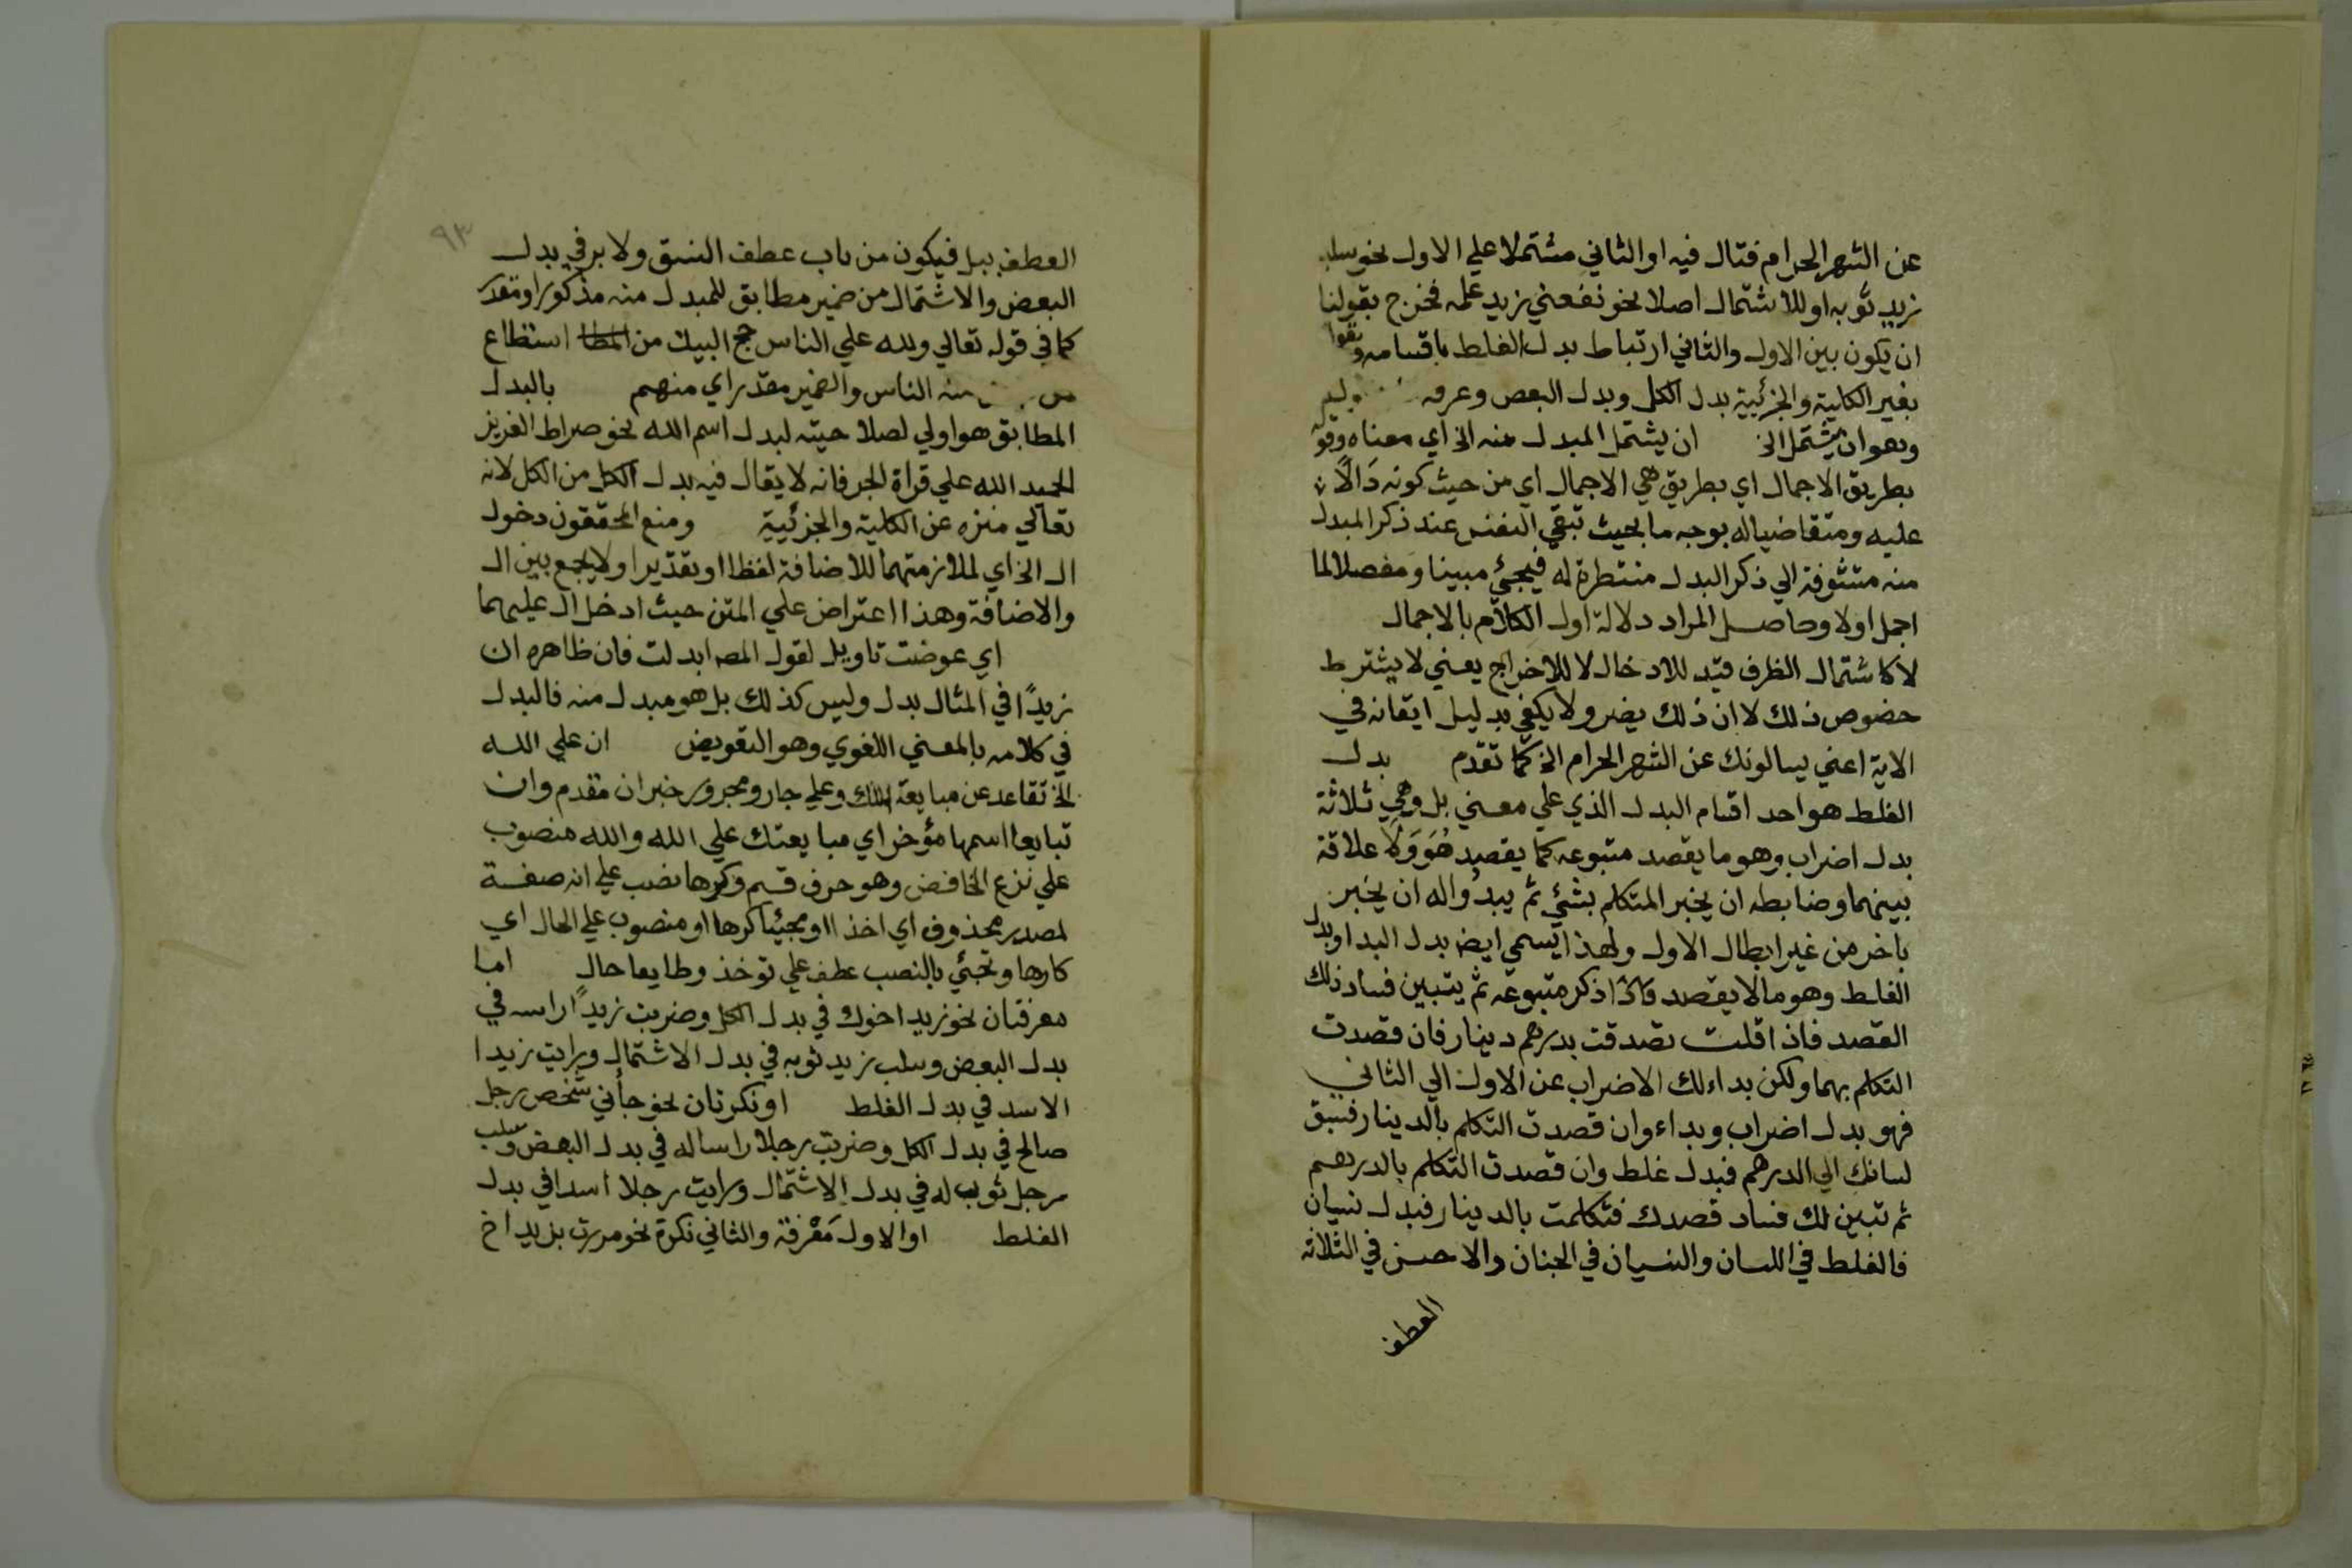 عن الشهر الحرام قتال فيه او الثاني مشتملا علي الاول نحو سلب
زيد ثوبه او للاشتمال اصلا نحو نفعني زيد علمه فخرج بقولنا
ان يكون بين الاول والثاني ارتباط بدل الغلط باقسامه وبقولنا
بغير الكلية والجزئية بدل الكل وبدل البعض وعرفه
وهو ان يشتمل الخ ان يشتمل المبدل منه الخ اي معناه وقوله
بطريق الاجمال اي بطريق هي الاجمال اي من حيث كونه دَالًا
عليه ومتقاضيا له بوجه ما بحيث تبقي النفس عند ذكر المبدل
منه متشوفة الي ذكر البدل منتظرة له فيجئ مبينا ومفصلا لما
اجمل اولا وحاصل المراد دلالة اول الكلام بالاجمال
لا كاشتمال الظرف قيد للادخال لا للاخراج يعني لا يشترط
خصوص ذلك لا ان ذلك يضر ولا يكفي بدليل ايقانه في
الاية اعني يسالونك عن الشهر الحرام الخ كما تقدم بدل
الغلط هو احد اقسام البدل الذي علي معني بل وهي ثلاثة
بدل اضراب وهو ما يقصد متبوعه كما يقصد هُوَ وَلَا علاقة
بينهما وضابطه ان يخبر المتكلم بشئ ثم يبدُو اله ان يخبر
باخر من غير ابطال الاول ولهذا يسمي ايضا بدل البدا وبدل
الغلط وهو ما لا يقصد واذا ذكر متبوعه ثم يتبين فساد ذلك
القصد فاذا قلت تصدقت بدرهم دينار فان قصدت
التكلم بهما ولكن بداء لك الاضراب عن الاول الي الثاني
فهو بدل اضراب وبداء وان قصدت التكلم بالدينار فسبق
لسانك الي الدرهم فبدل غلط وان قصدت التكلم بالدرهم
ثم تبين لك فساد قصدك فتكلمت بالدينار فبدل نسيان
فالغلط في اللسان والنسيان في الجنان والاحسن في الثلاثة
العطف
٩٣
العطف ببل فيكون من باب عطف النسق ولا بد في بدل
البعض والاشتمال من ضمير مطابق للمبدل منه مذكور او مقدر
كما في قوله تعالي ولله علي الناس حج البيت من استطاع
منه الناس والضمير مقدر اي منهم بالبدل
المطابق هو اولي لصلاحيته لبدل اسم الله نحو صراط العزيز
الحميد الله علي قراة الجر فانه لا يقال فيه بدل الكل من الكل لانه
تعالي منزه عن الكلية والجزئية ومنع المحققون دخول
ال الخ اي لملازمتهما للاضافة لفظا او تقديرا ولا يجمع بين ال
والاضافة وهذا اعتراض علي المتن حيث ادخل ال عليهما
اي عوضت تاويل لقول المصه ابدلت فان ظاهره ان
زيدًا في المثال بدل وليس كذلك بل هو مبدل منه فالبدل
في كلامه بالمعني اللغوي وهو التعويض ان علي الله
الخ تقاعد عن مبايعة الملك وعلي جار ومجرور خبر ان مقدم وان
تبايعا اسمها مؤخر اي مبايعتك علي الله والله منصوب
علي نزع الخافض وهو حرف قسم وكرها نصب علي انه صفة
لمصدر محذوف اي اخذا او مجيئا كرها او منصوب علي الحال اي
كارها وتجئ بالنصب عطف علي توخذ وطايعا حال اما
معرفتان نحو زيد اخوك في بدل الكل وضربت زيدًا راسه في
بدل البعض وسلب زيد ثوبه في بدل الاشتمال ورايت زيدا
الاسد في بدل الغلط او نكرتان نحو جأني شخص رجل
صالح في بدل الكل وضربت رجلا راسا له في بدل البعض وسلب
رجل ثوب له في بدل الاشتمال ورايت رجلا اسدا في بدل
الغلط او الاول مَعْرفة والثاني نكرة نحو مررت بزيد اخ